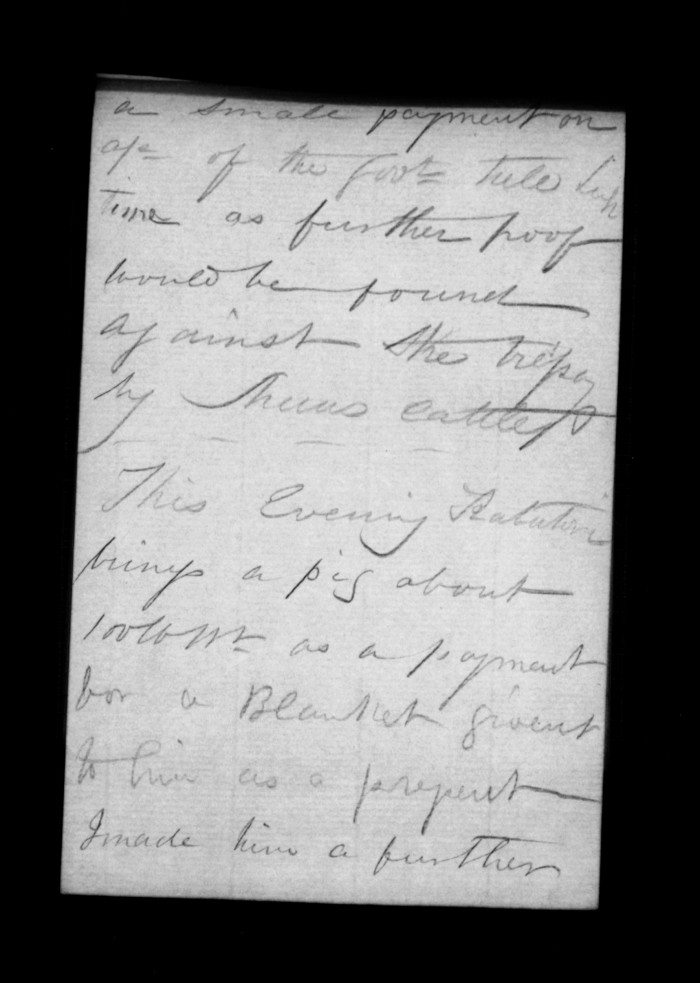 a small payment on
a/c of the Govt till such
time as further proof
would be found
against the trespass
by Thieves Cattle
This Evening
brings a pig about
100lb Wt as a payment
for a Blanket givent
to him as a present
I made him a further